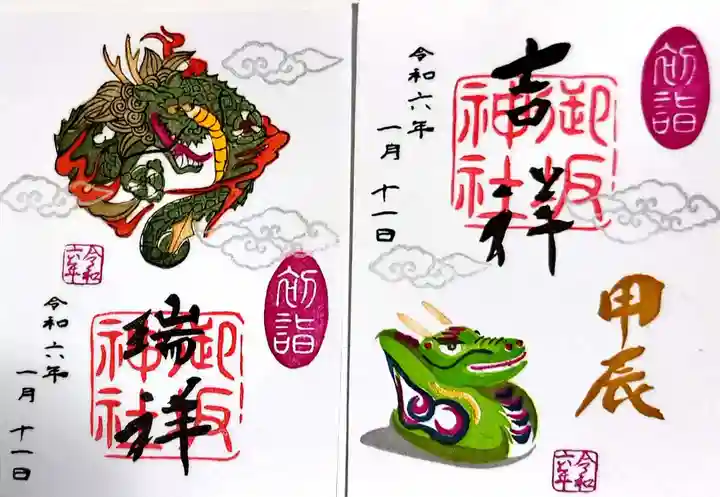 初詣
瑞祥
御坂神社
令和六年
一月十一日
令和六年
初詣
吉祥
御坂神社
令和六年
一月十一日
甲辰
令和六年